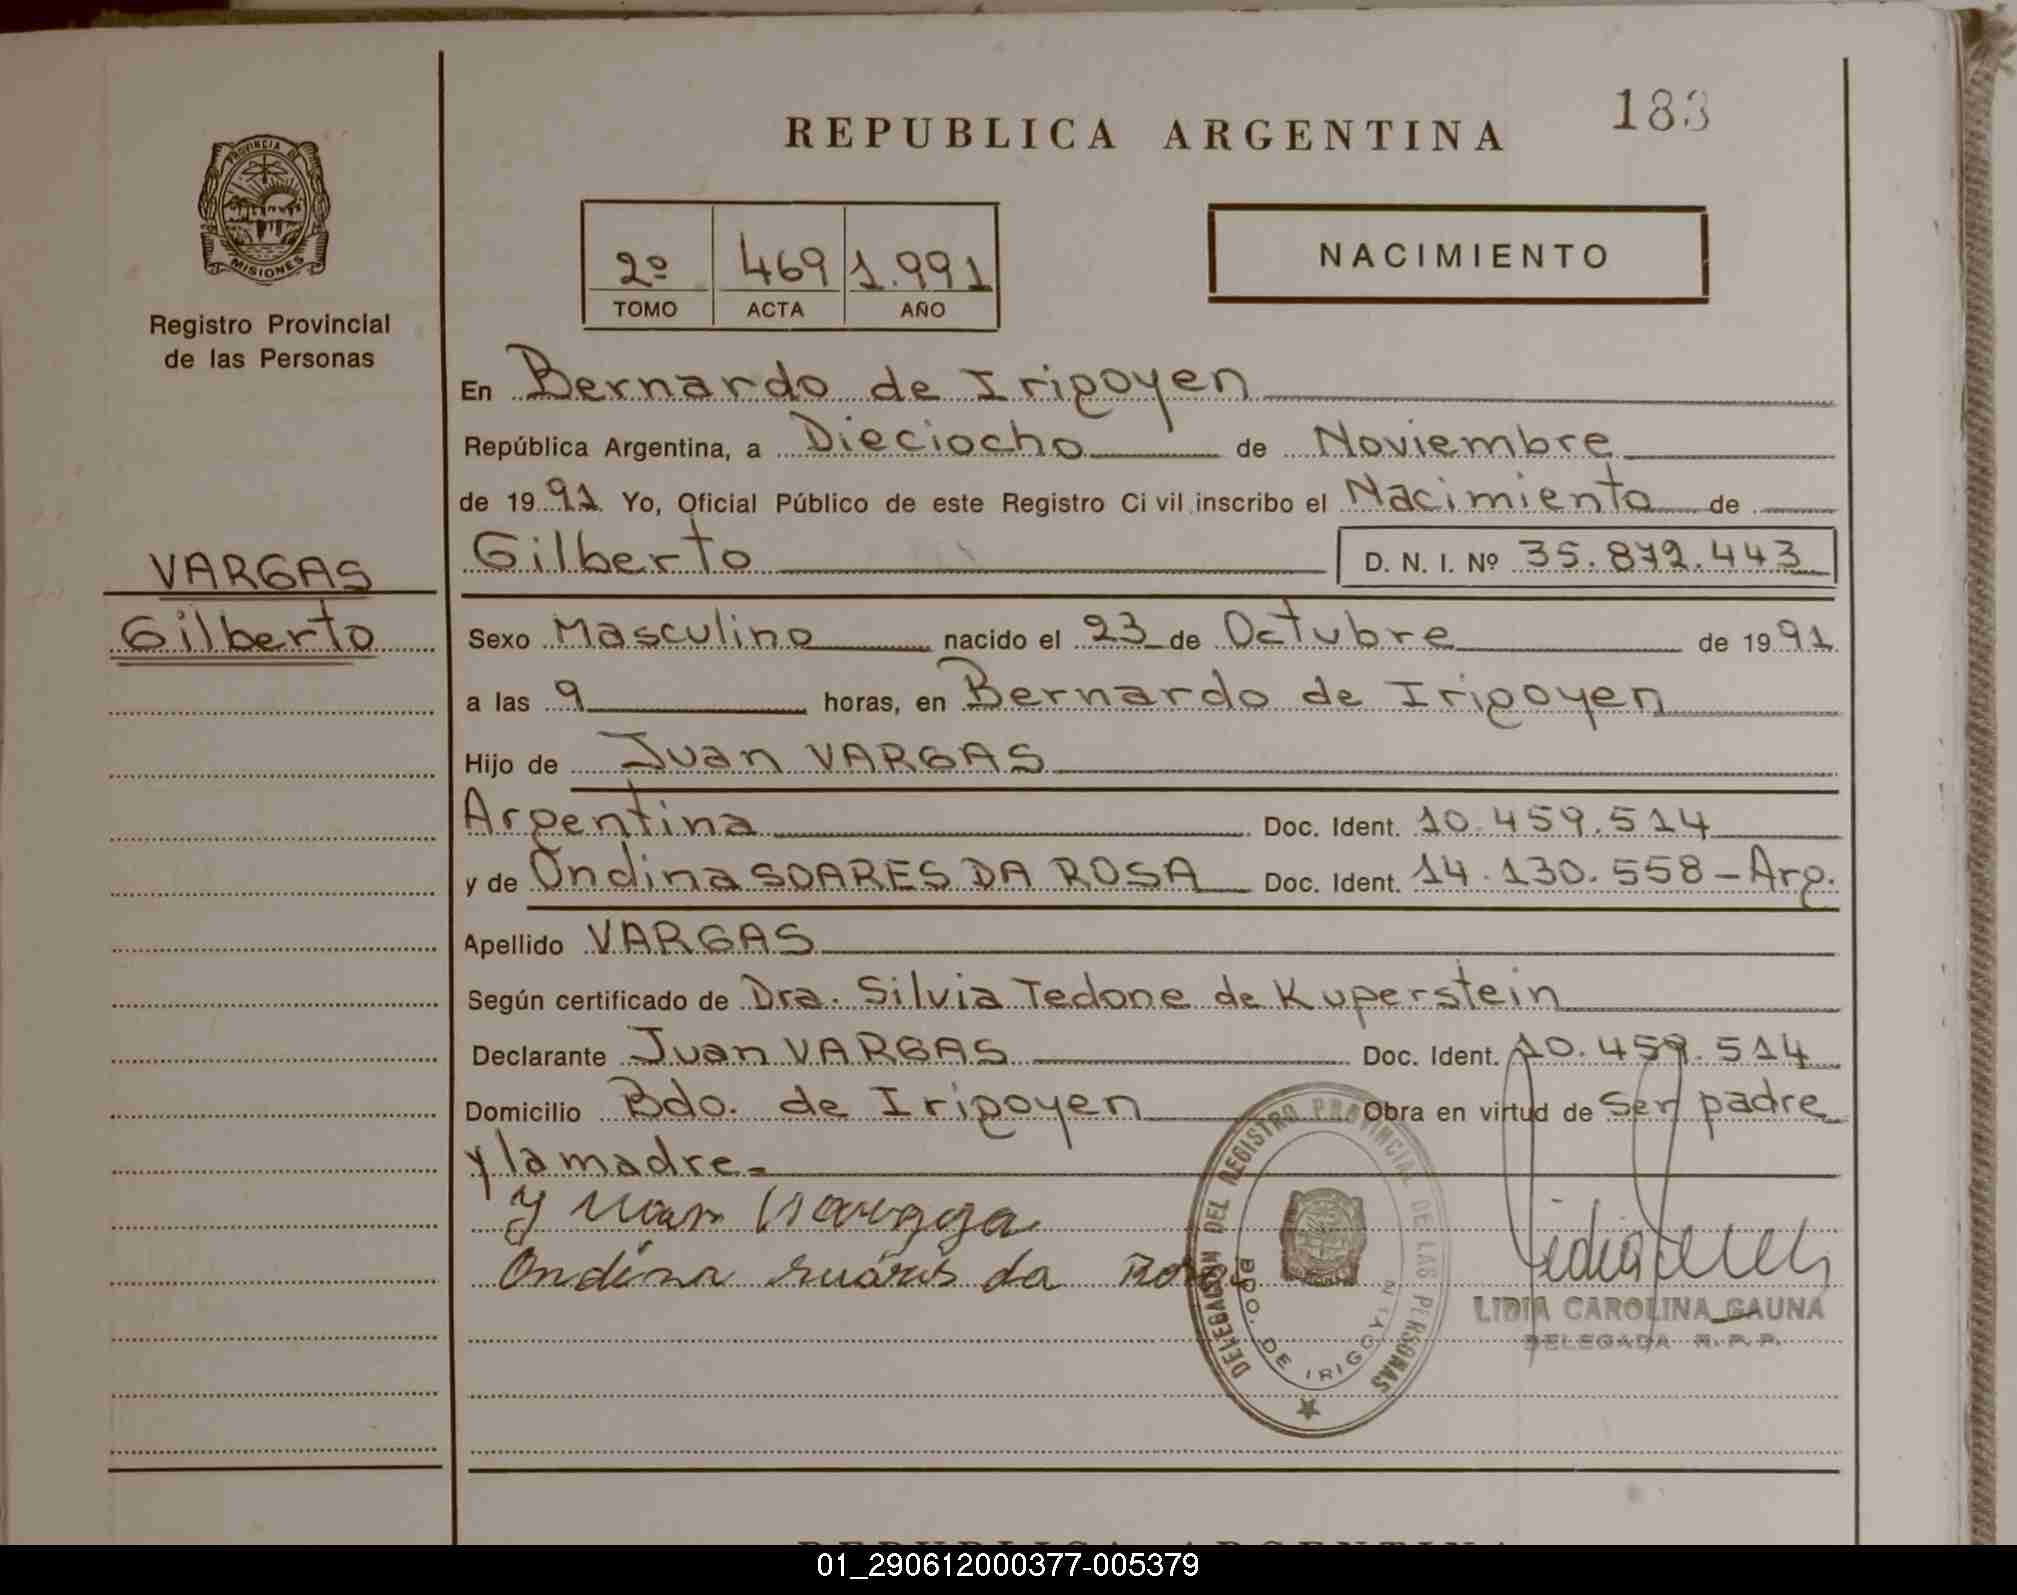 183
REPUBLICA ARGENTINA
PROVINCIA DE
MISIONES
Registro Provincial
de las Personas
2º 469 1.991
TOMO ACTA AÑO
NACIMIENTO
En Bernardo de Irigoyen
República Argentina, a Dieciocho de Noviembre
de 1991 Yo, Oficial Público de este Registro Ci vil inscribo el Nacimiento de
Gilberto D. N. I. Nº 35.872.443
VARGAS
Gilberto
Sexo Masculino nacido el 23 de Octubre de 1991
a las 9 horas, en Bernardo de Irigoyen
Hijo de Juan VARGAS
Argentina Doc. Ident. 10.459.514
y de Ondina SOARES DA ROSA Doc. Ident. 14.130.558 - Arg.
Apellido VARGAS
Según certificado de Dra. Silvia Tedone de Kuperstein
Declarante Juan VARGAS Doc. Ident. 10.459.514
Domicilio Bdo. de Irigoyen Obra en virtud de Ser padre
y la madre.-
Ondina da
DELEGACION DEL REGISTRO PROVINCIAL DE LAS PERSONAS
BDO. DE IRIGOYEN
LIDIA CAROLINA GAUNA
DELEGADA R.P.P.
REPUBLICA ARGENTINA
01_290612000377-005379